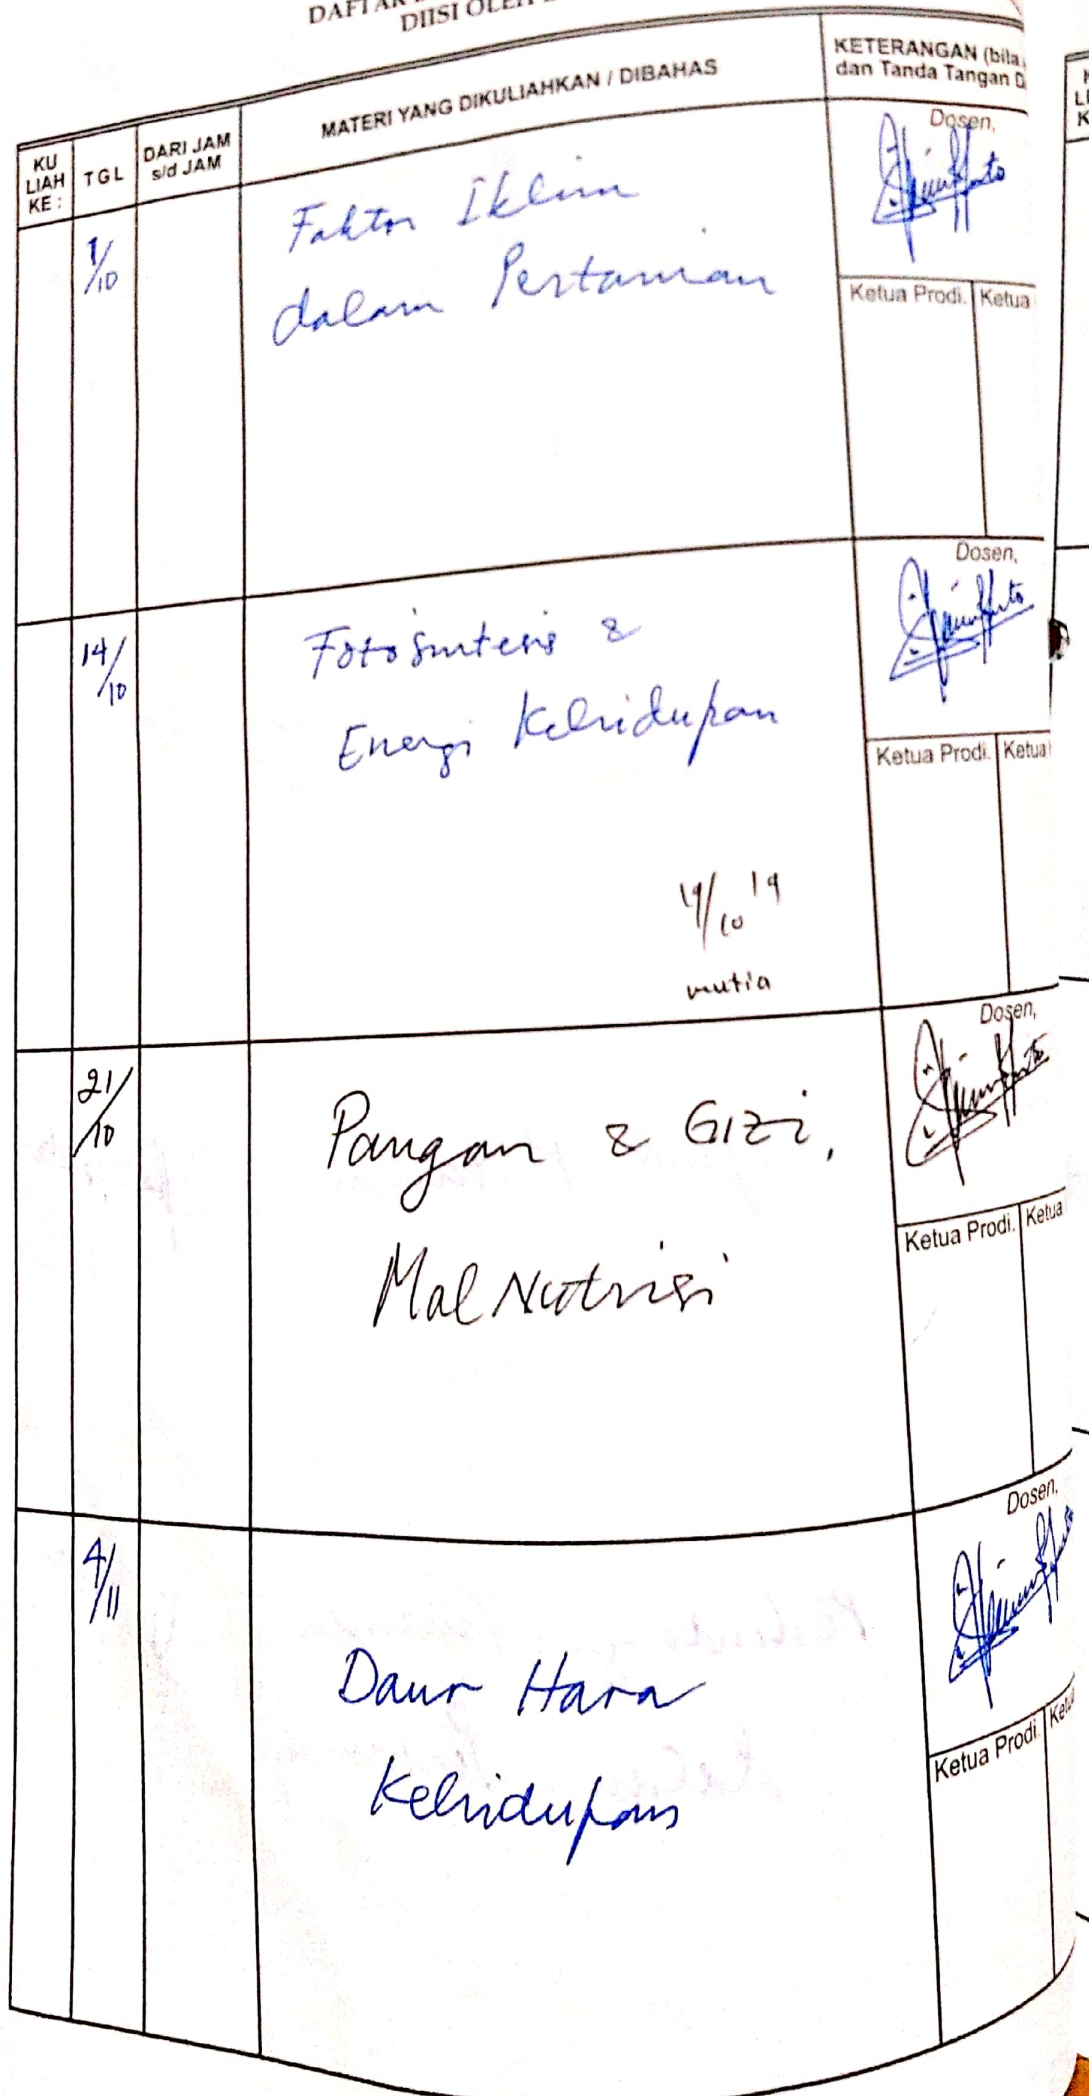 DAFTAR
DIISI OLEH
KU
LIAH
KE :
TGL
DARI JAM
s/d JAM
MATERI YANG DIKULIAHKAN / DIBAHAS
KETERANGAN (bila
dan Tanda Tangan D
1/10
Faktor Iklim
dalam Pertanian
Dosen,
Ketua Prodi.
Ketua
14/10
Fotosintesis &
Energi Kehidupan
19/10 '19
mutia
Dosen,
Ketua Prodi.
Ketua
21/10
Pangan & Gizi,
Mal Nutrisi
Dosen,
Ketua Prodi.
Ketua
4/11
Daur Hara
Kehidupan
Dosen,
Ketua Prodi.
Ketua